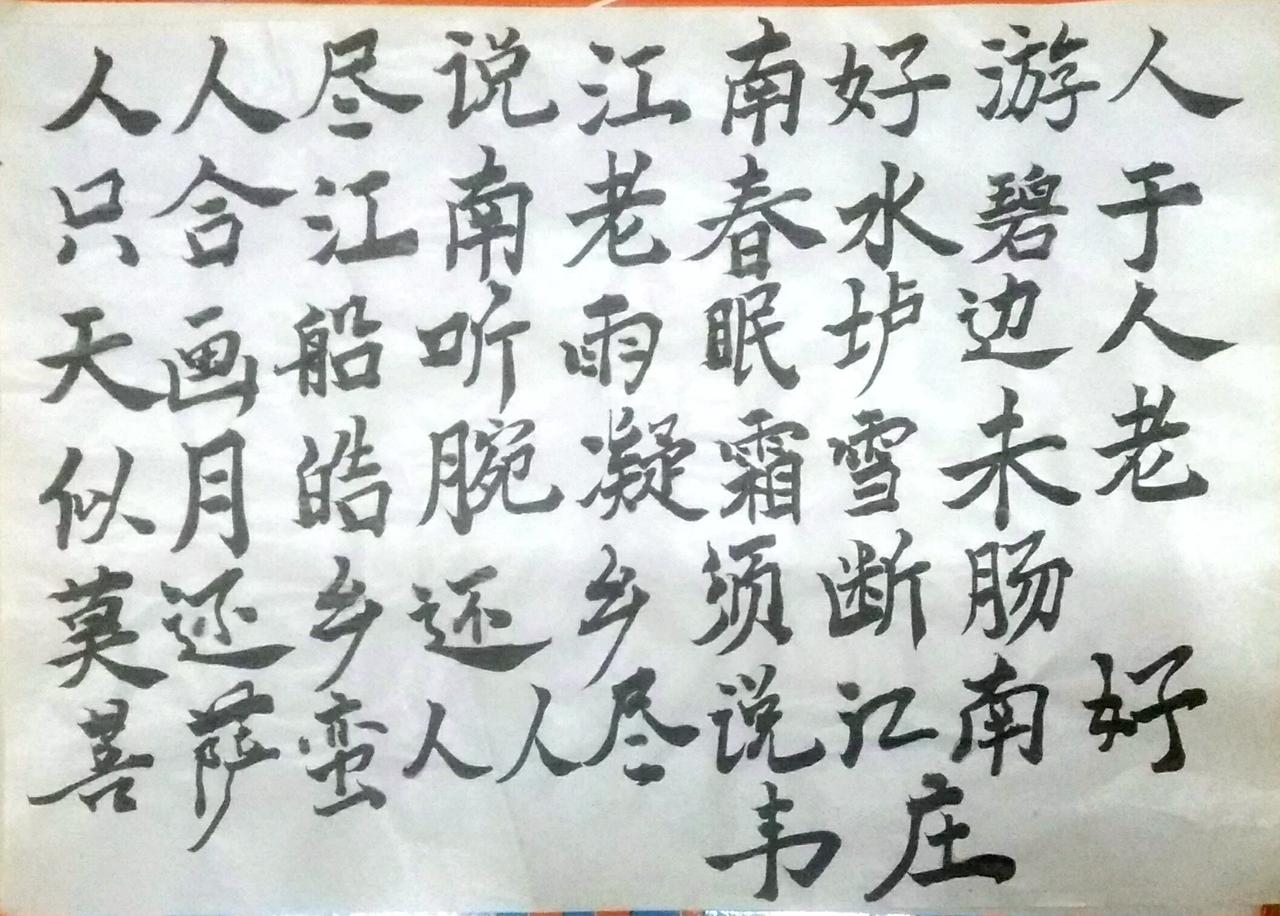 人人尽说江南好游人
只合江南老春水碧于
天画船听雨眠垆边人
似月皓腕凝霜雪未老
莫还乡还乡须断肠
菩萨蛮人人尽说江南好
韦庄